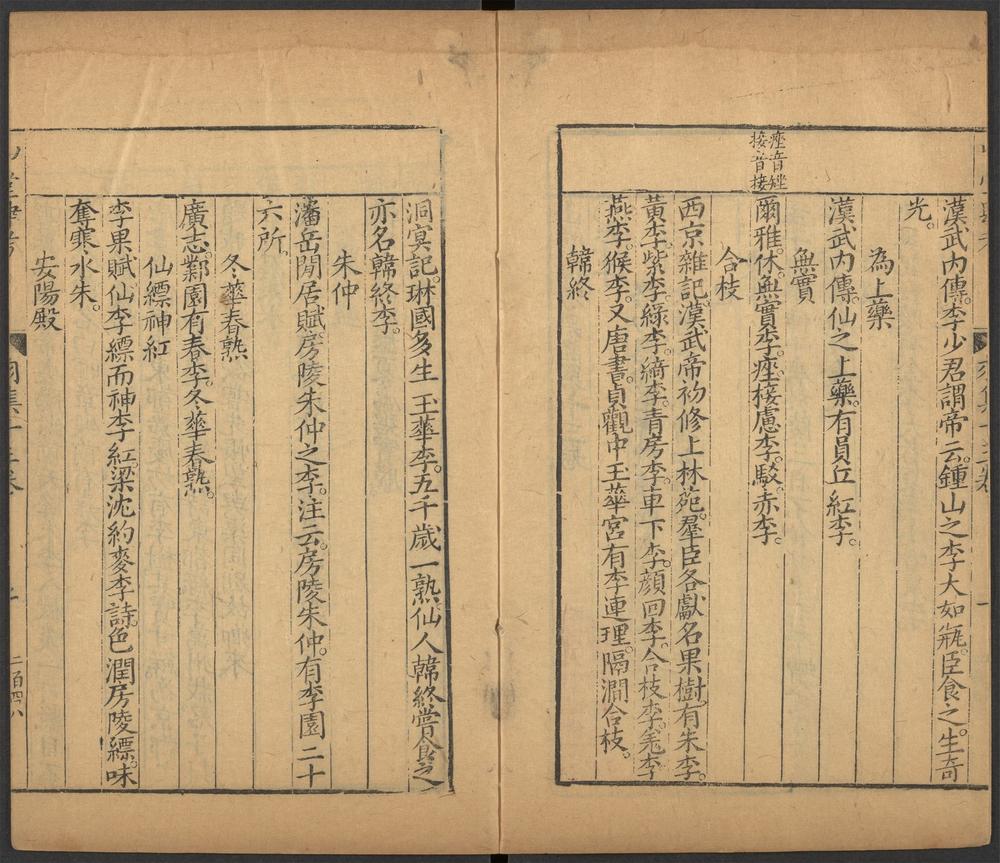 漢武內傳。李少君謂帝云。鍾山之李大如瓶。臣食之。生奇
光。
為上藥
漢武內傳。仙之上藥。有員丘紅李。
無實
座音矬
接音接
爾雅。休。無實李。痤。接慮李。駁。赤李。
合枝
西京雜記。漢武帝初修上林苑。羣臣各獻名果樹。有朱李。
黃李。紫李。綠李。綺李。青房李。車下李。顏回李。合枝李。羌李
燕李。猴李。又唐書。貞觀中玉華宮有李連理。隔澗合枝。
韓終
洞冥記。琳國多生玉華李。五千歲一熟。仙人韓終嘗食之
亦名韓終李。
朱仲
潘岳閒居賦。房陵朱仲之李。注云。房陵朱仲。有李園二十
六所。
冬華春熟
廣志。鄴園有春李。冬華春熟。
仙縹神紅
李果賦。仙李縹而神李紅。梁沈約麥李詩。色潤房陵縹。味
奪寒水朱。
安陽殿
二百四八